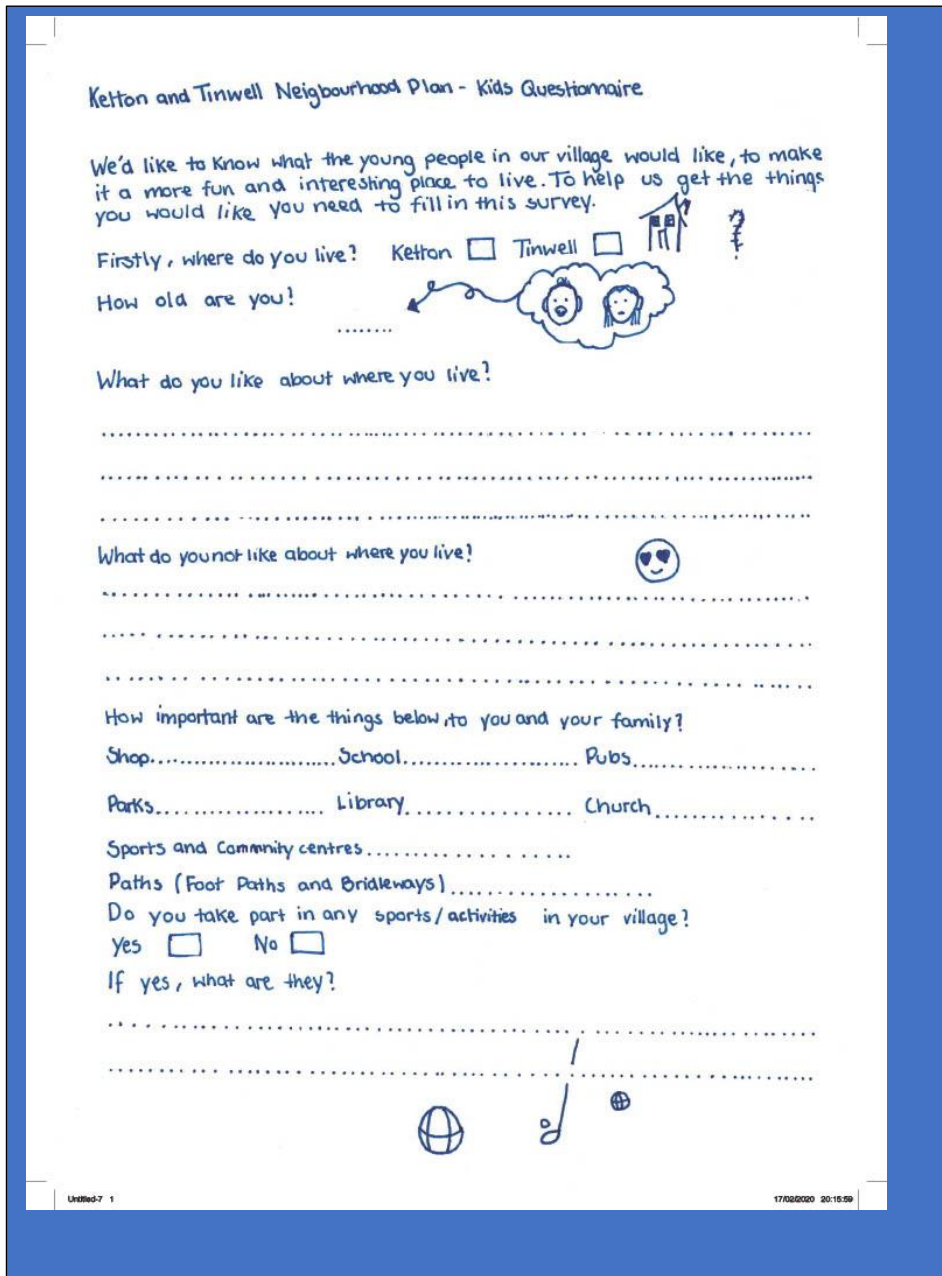 Ketton and Tinwell Neigbourhood Plan - Kids Questionnaire
We'd like to know what the young people in our village would like, to make
it a more fun and interesting place to live. To help us get the things
you would like you need to fill in this survey.
Firstly, where do you live? Ketton Tinwell
How old are you?
........
What do you like about where you live?
What do you not like about where you live?
How important are the things below, to you and your family?
Shop.......................... School....................... Pubs......................
Parks.................... Library.................. Church....................
Sports and Commnity centres......................
Paths (Foot Paths and Bridleways)......................
Do you take part in any sports/activities in your village?
Yes No
If yes, what are they?
Untitled-7 1 17/02/2020 20:15:59